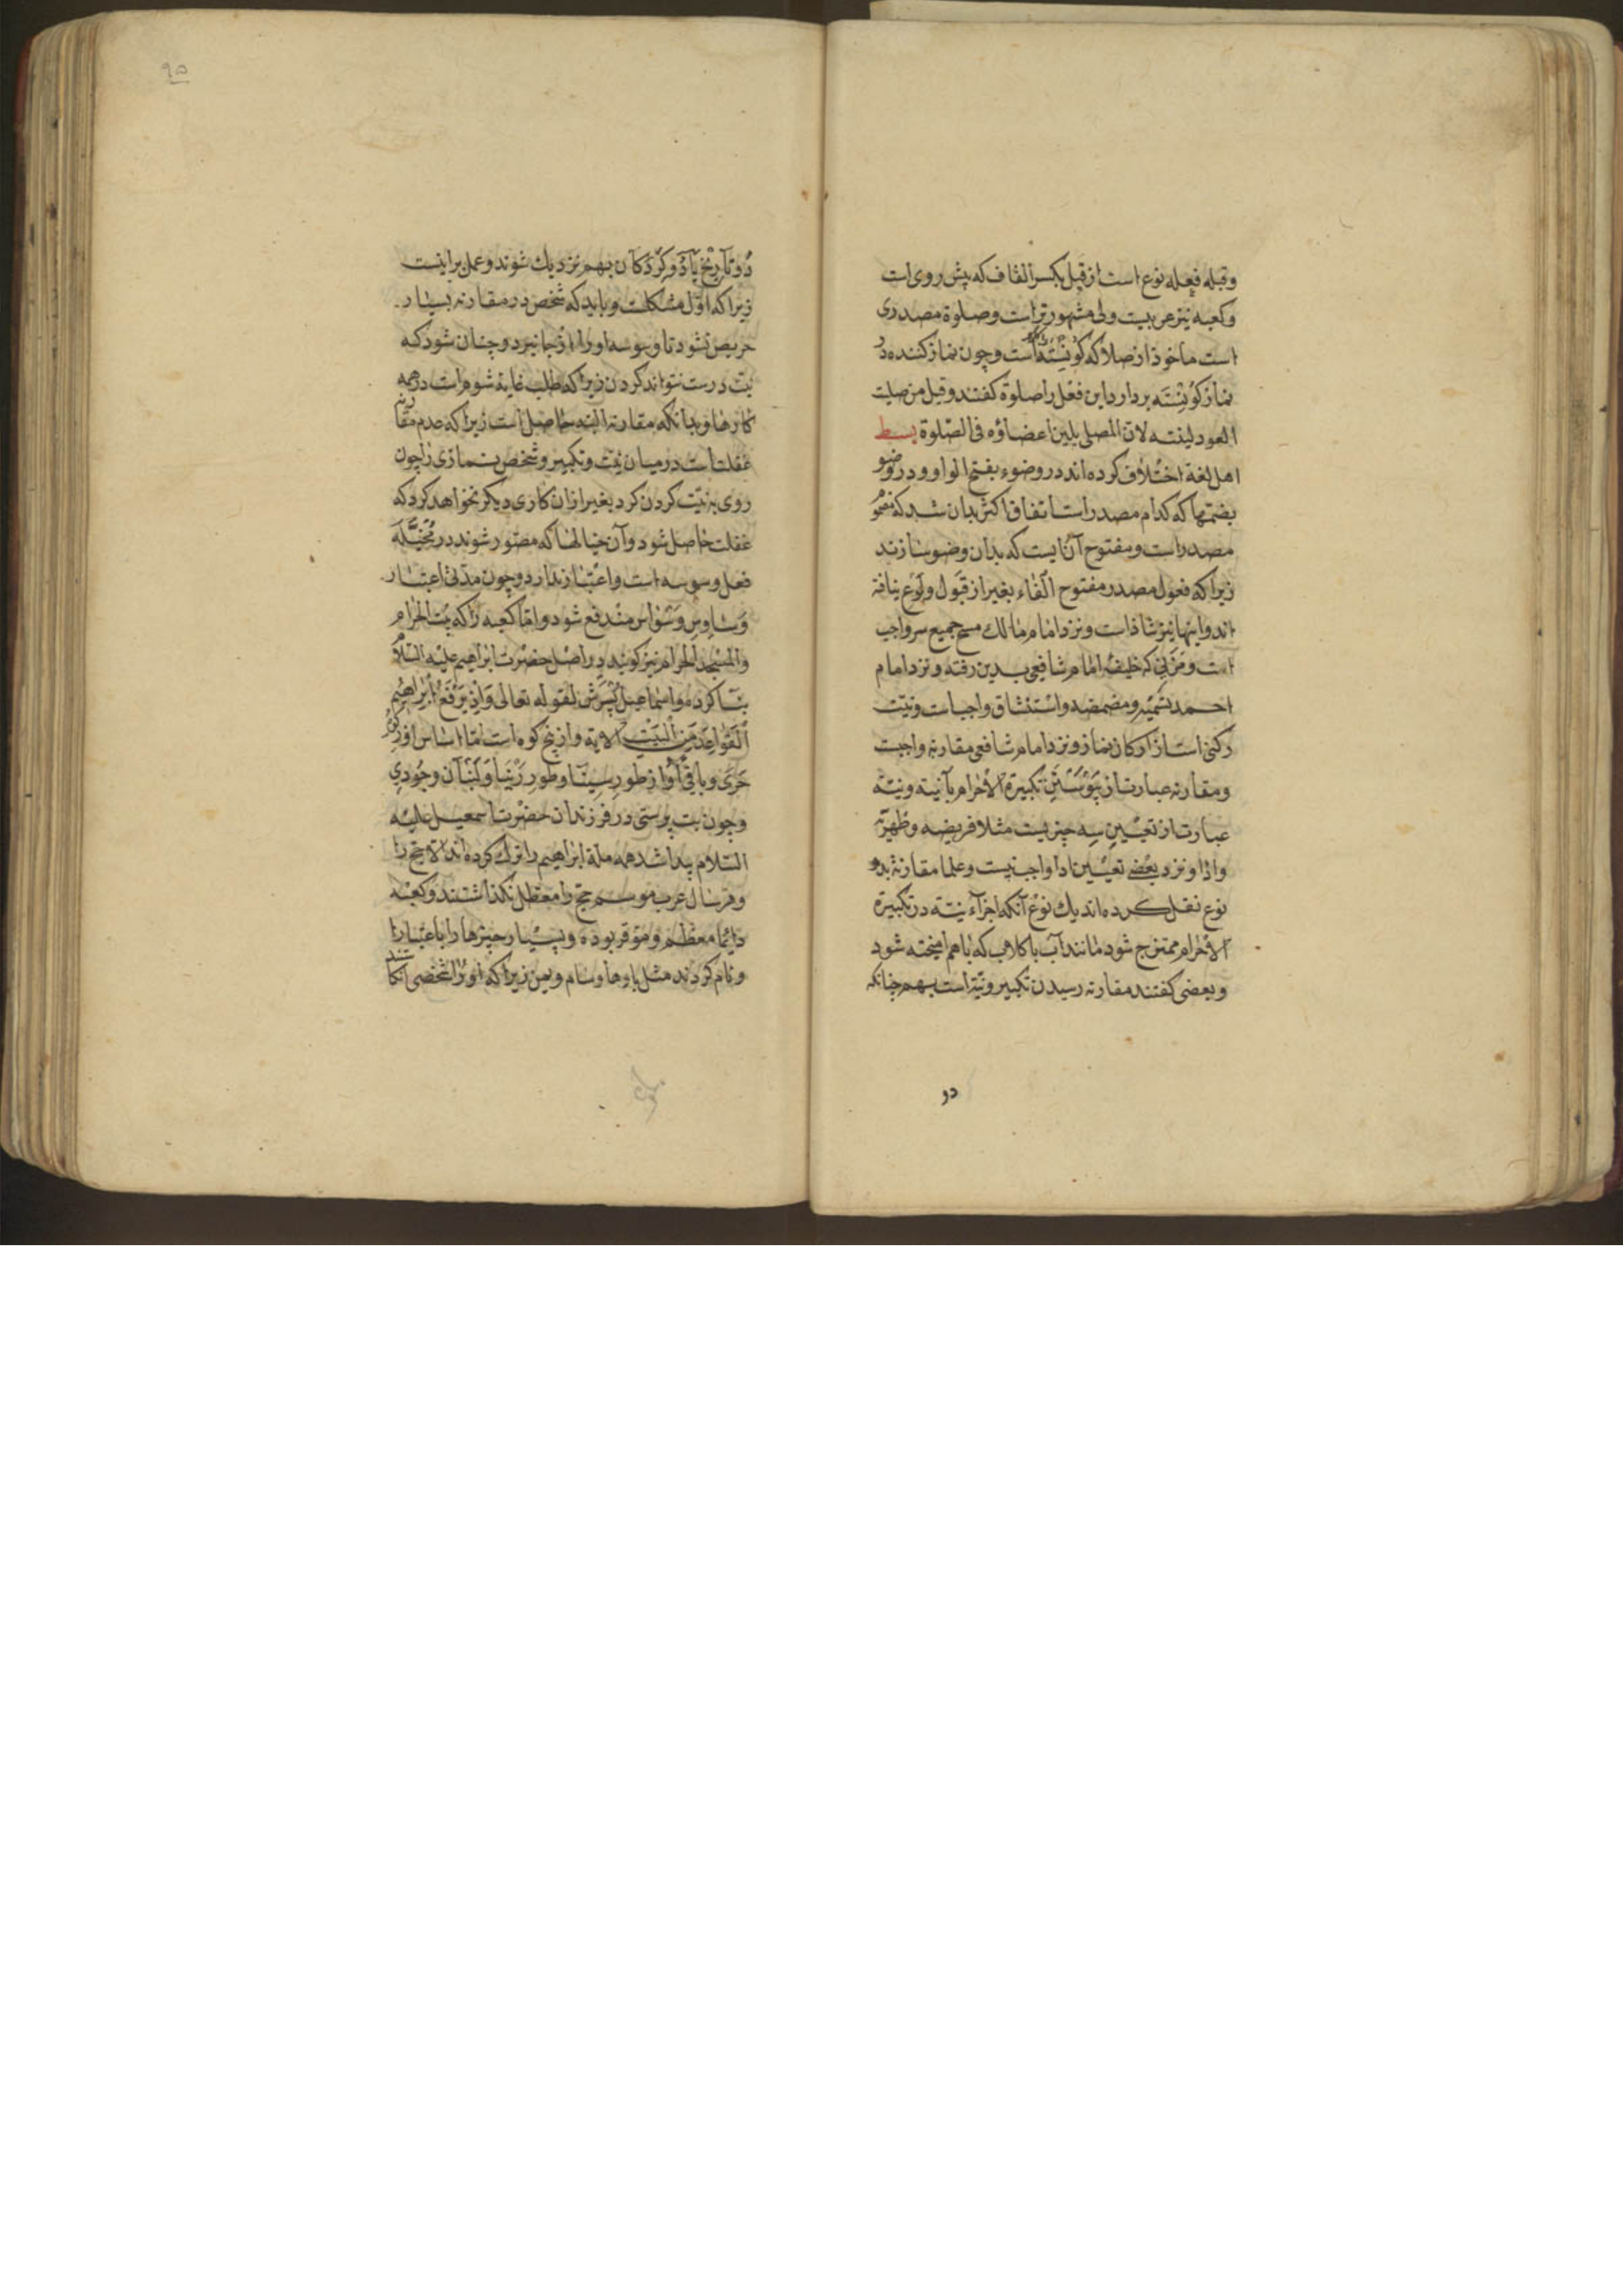 وقبله فِعله نوع است از قِبل بکسر القاف که پیش روی است
وکعبه نیز عربیست ولی مشهورتر است وصلوة مصدری
است ماخوذ از صلا که کونِسْتَه است وچون نماز کننده در
نماز کونِسْتَه بردارد این فعل را صلوة کفتند وقیل من صلیت
العود لینته لان المصلی یلین اعضاؤه فی الصّلوة بسط
اهل لغة اختلاف کرده اند در وضوء بفتح الواو ودر وضو
بضمّها که کدام مصدر است اتفاق اکثر بدان شد که مضمو
مصدر است ومفتوح آن آبیست که بدان وضو سازند
زیرا که فعول مصدر مفتوح الفاء بغیر از قَبول ولوع نیافته
اند واینها نیز شاذ است ونزد امام مالک مسح جمیع سر واجب
است ومُزَنی که خلیفهٔ امام شافعی بدین رفته ونزد امام
احمد تسمیه ومضمضه واستنشاق واجبات ونیّت
رکنی است از ارکان نماز ونزد امام شافعی مقارنه واجبت
ومقارنه عبارت از تکبیرة الاحرام بآ نیّه ونیّه
عبارت از تعیین سه چیزیست مثلا فریضه وظهریّه
وادا ونزد بعضی تعیین ادا واجب نیست وعلما مقارنهٔ بدو
نوع نقل کرده اند یك نوع آنکه اجزآء نیّه در تکبیرة
الاحرام ممتزج شود مانند آب با کلاب که با هم آمیخته شود
وبعضی کفتند مقارنه رسیدن تکبیر ونیّه است بهم چنانکه
دو
٩٥
دو تآ بهم نزدیك شوند وعمل براینست
زیرا که اوّل مشکلت وباید که شخص در مقارنه بسیار
حریص نشود تا وسوسه اورا از جا نبرد وچنان شود که
نیّت درست نتواند کردن زیرا که طلب غایة شوم است در همه
کارها وبدانکه مقارنه البته حاصل است زیرا که عدم مقارنه
غفلت است در میان نیّت وتکبیر وشخص نمازی را چون
روی به نیّت کردن کرد بغیر ازان کاری دیکر نخواهد کرد که
غفلت حاصل شود وآن خیالها که مصوّر شوند در مُخَیَّلَه
فعل وسوسه است واعتبار ندارد وچون مدتی اعتبار
وساوس وسواس مندفع شود وامّا کعبه را که بیت الحرام
والمسجد الحرام نیز کویند در اصل حضرت ابراهیم علیه السّلام
بنا کرده واسماعیل پسرش لقوله تعالی وَاِذْ یَرْفَعُ اِبْراهیم
الْقَوَاعِدَ مِنَ الْبَیْتِ الایة واز پنج کوه است امّا اساس او از کوه
حَرَی وباقی او از طور سِینا وطور زَیْتا ولُبْنان وجُودی
وچون بت پرستی در فرزندان حضرت اسمعیل علیه
السّلام پیدا شد همه ملة ابراهیم را ترك کرده اند الا حج را
وهر سال عرب موسم حج را معطل نکذاشتند وکعبه
دائما معظم وموقّر بوده وبسیار چیزها را باعتبار
ونام کردند مثل یا وها وسام ویمن زیرا که اورا شخصی انکاشتند